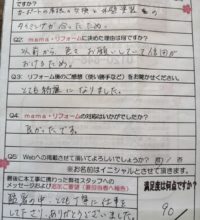 ですか?
タイミングが合ったため。
Q2. mama・リフォームに決めた理由は何ですか?
以前から 色々 お願いしていて信用が
おけるため。
Q3. リフォーム後のご感想(使い勝手など)をお聞かせください。
とても綺麗になりました。
Q4. mama・リフォームの対応はいかがでしたか?
良かったです。
Q5. Webへの掲載させて頂いてよろしいでしょうか?
※お名前はイニシャルとさせて頂きます。
最後に本工事に携わった弊社スタッフへの
メッセージおよび
満足度は何点ですか?
酷暑の中、とても丁寧に仕事を
して下さり、ありがとうございました。
90